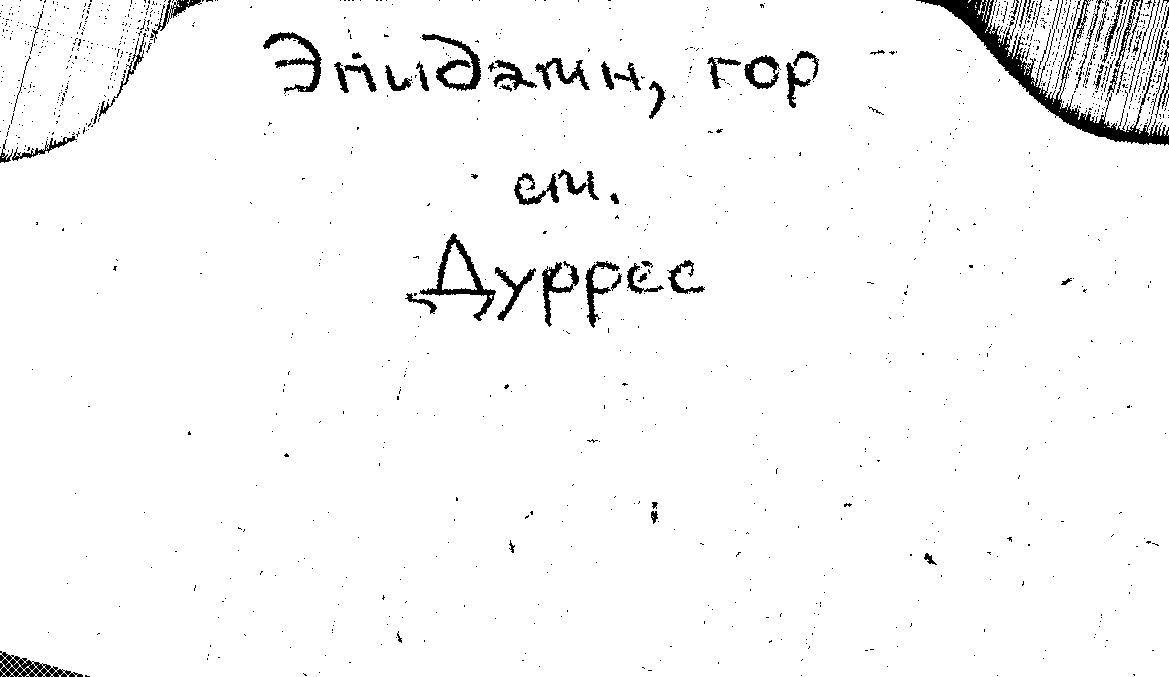 Эпидамн, гор
см.
Дуррес